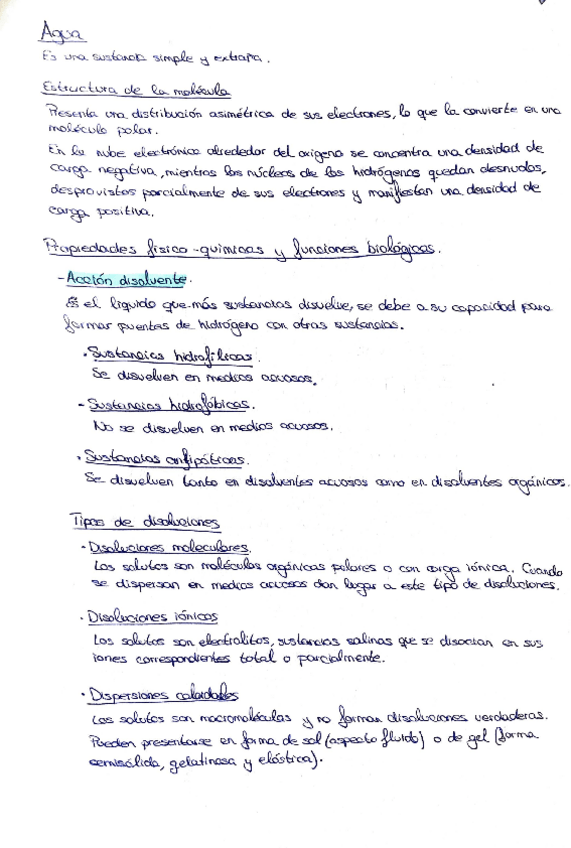 Agua
Es una sustancia simple y extraña.
Estructura de la molécula
Presenta una distribución asimétrica de sus electrones, lo que la convierte en una
molécula polar.
En la nube electrónica alrededor del oxígeno se concentra una densidad de
carga negativa, mientras los núcleos de los hidrógenos quedan desnudos,
desprovistos parcialmente de sus electrones y manifiestan una densidad de
carga positiva.
Propiedades físico-químicas y funciones biológicas.
-Acción disolvente.
Es el líquido que más sustancias disuelve, se debe a su capacidad para
formar puentes de hidrógeno con otras sustancias.
· Sustancias hidrofílicas.
Se disuelven en medios acuosos.
- Sustancias hidrofóbicas.
No se disuelven en medios acuosos.
· Sustancias anfipáticas.
Se disuelven tanto en disolventes acuosos como en disolventes orgánicos.
Tipos de disoluciones
· Disoluciones moleculares.
Los solutos son moléculas orgánicas polares o con carga iónica. Cuando
se dispersan en medios acuosos dan lugar a este tipo de disoluciones.
· Disoluciones iónicas
Los solutos son electrolitos, sustancias salinas que se disocian en sus
iones correspondientes total o parcialmente.
· Dispersiones coloidales
Los solutos son macromoléculas y no forman disoluciones verdaderas.
Pueden presentarse en forma de sol (aspecto fluido) o de gel (forma
semisólida, gelatinosa y elástica).